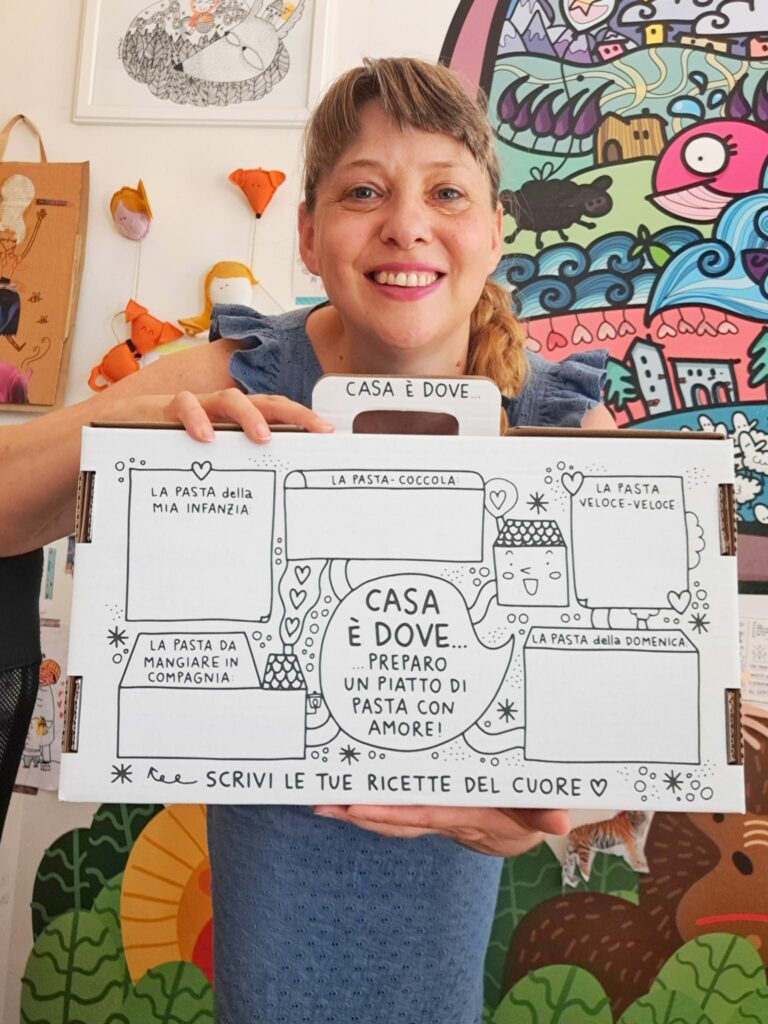 CASA È DOVE...
LA PASTA della
MIA INFANZIA:
LA PASTA-COCCOLA:
LA PASTA
VELOCE-VELOCE:
CASA
È DOVE...
...PREPARO
UN PIATTO DI
PASTA CON
AMORE!
LA PASTA DA
MANGIARE IN
COMPAGNIA:
LA PASTA della DOMENICA:
SCRIVI LE TUE RICETTE DEL CUORE